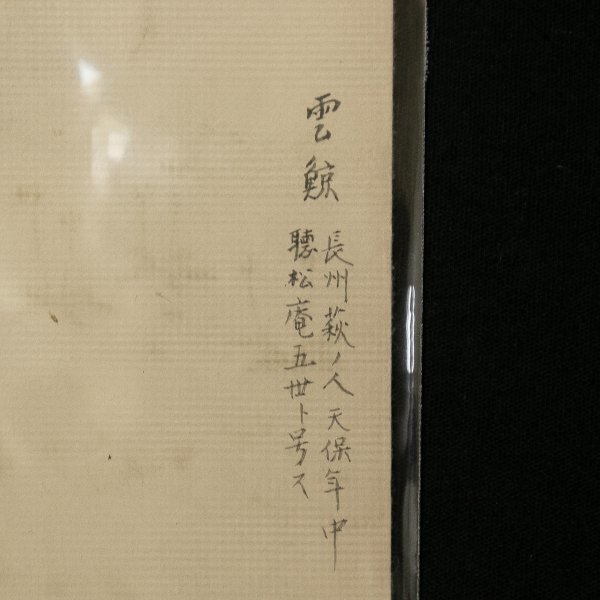 雲鯨
長州萩ノ人天保年中
聴松庵五世ト号ス